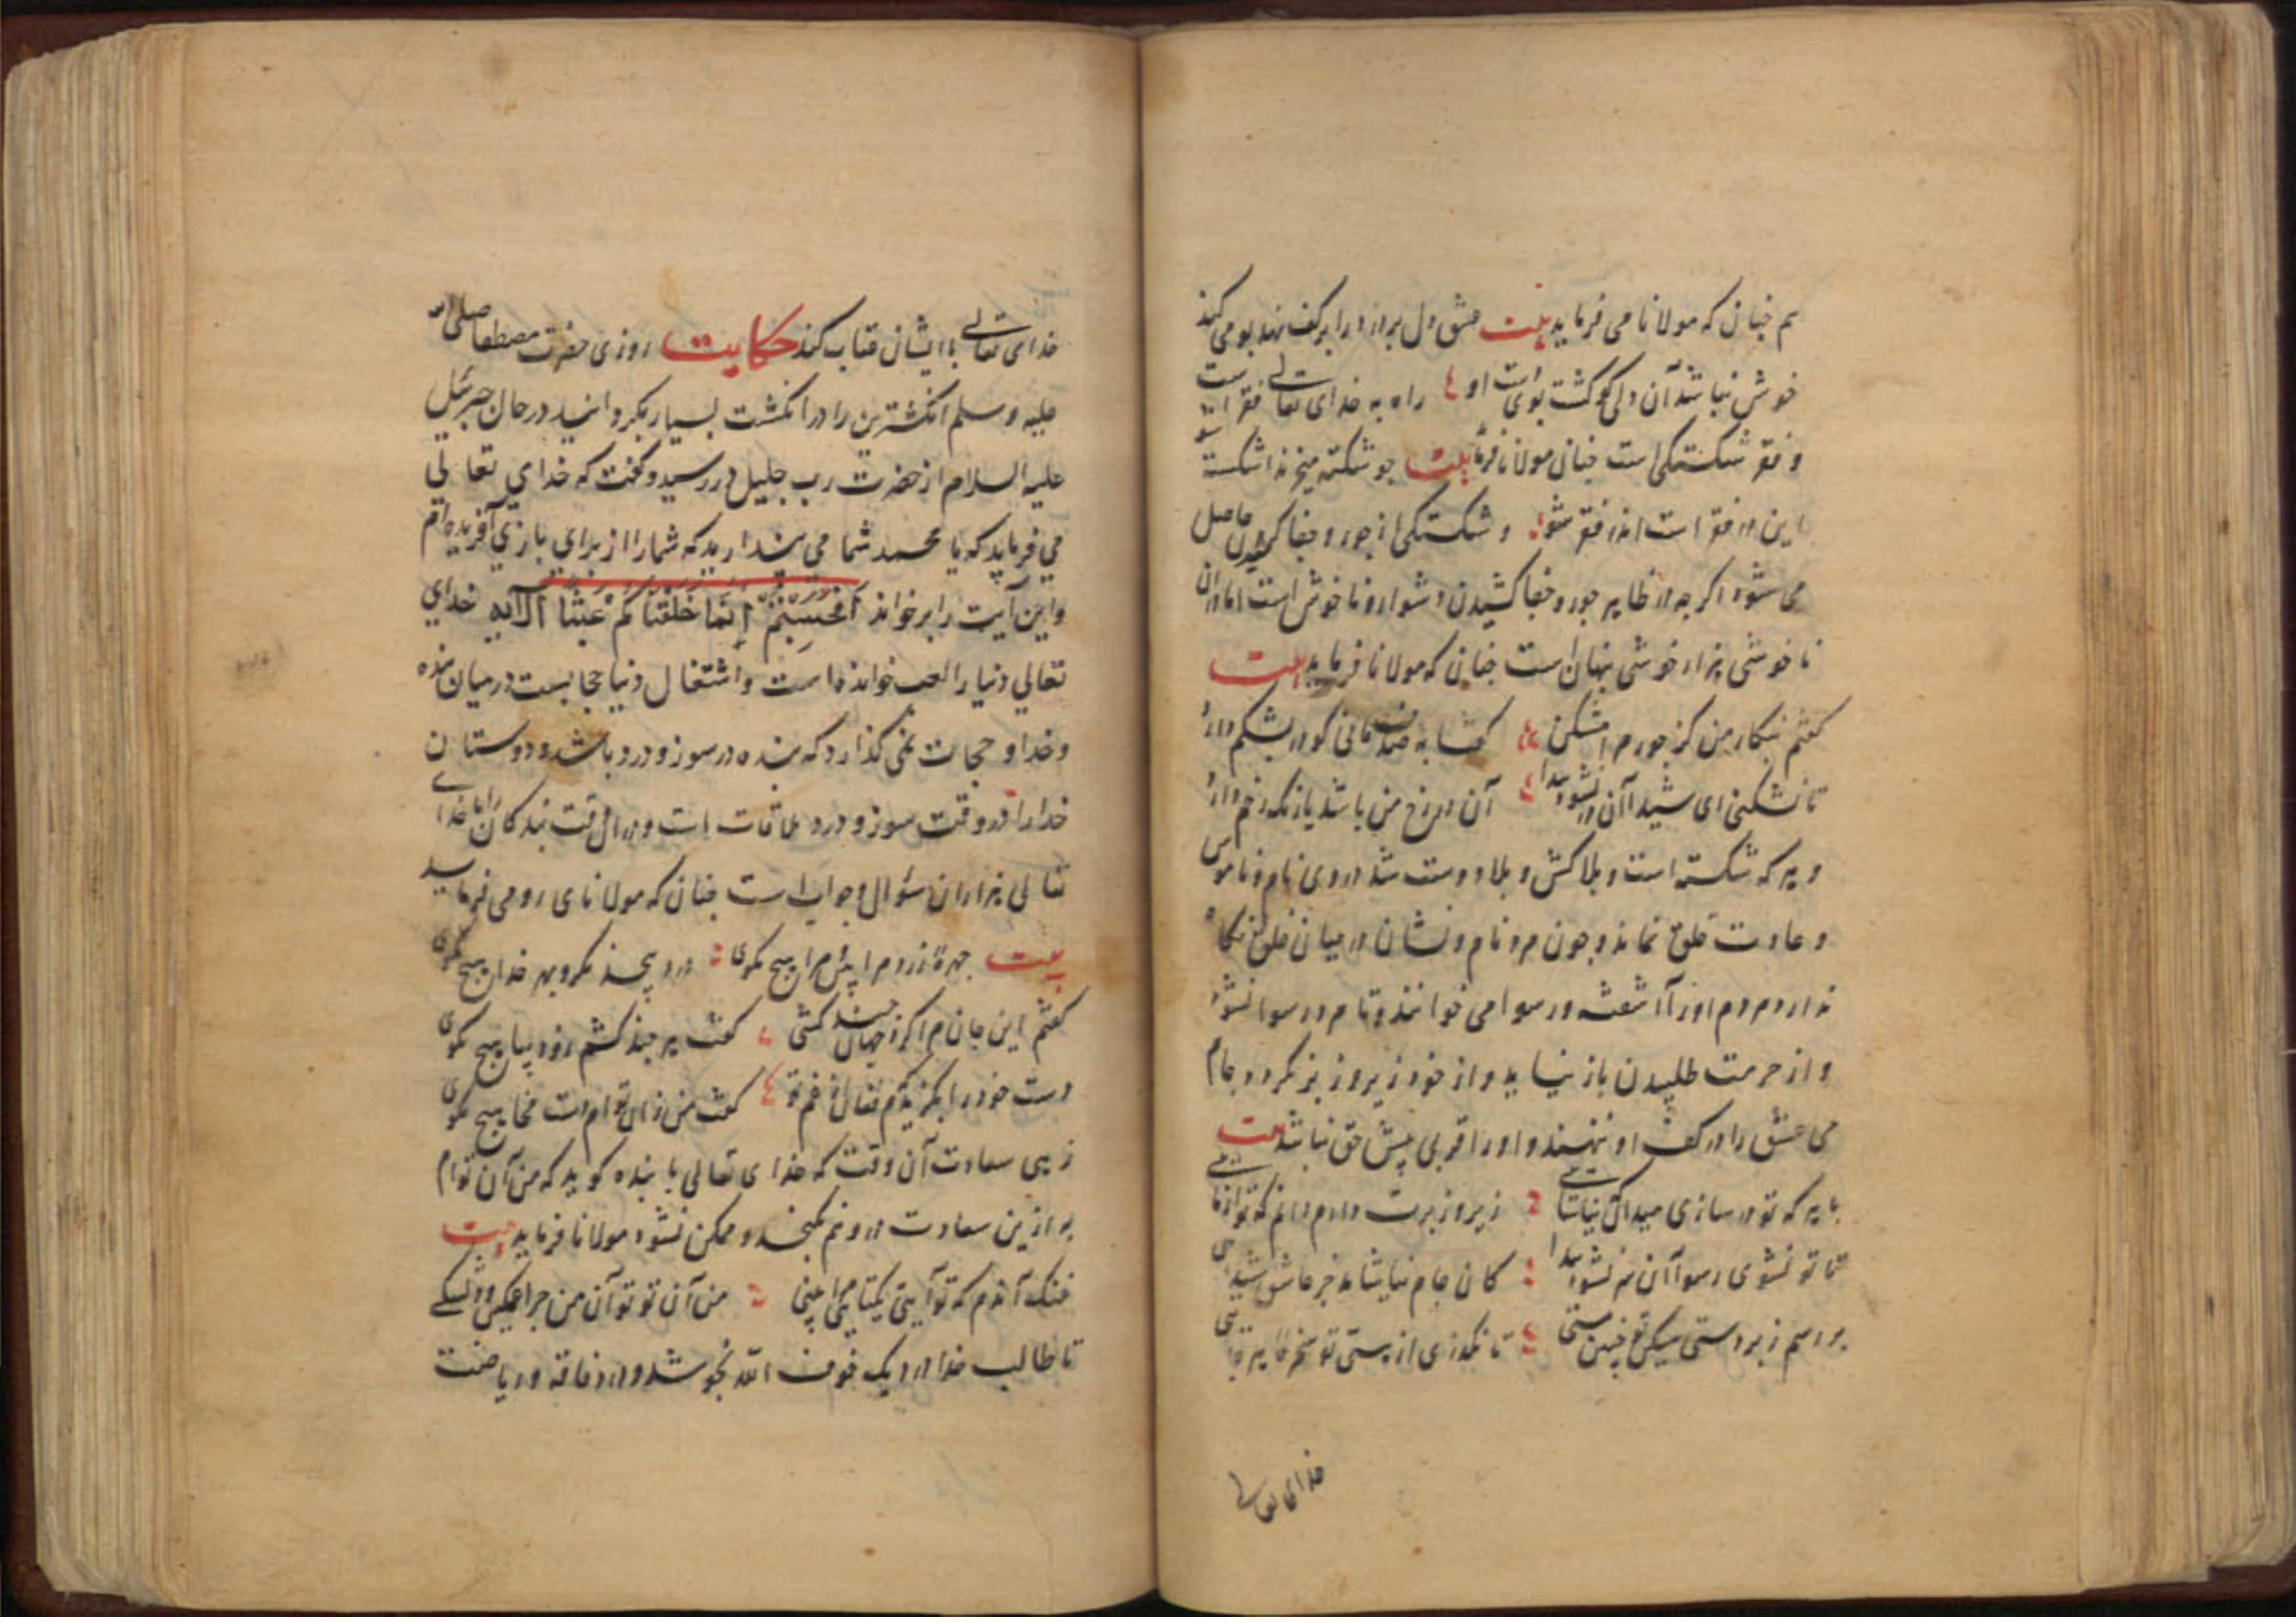 هم چنان که مولانا می فرماید بیت عشق دل پر درد را بر کف نهد بو می کند
خوش نباشد آن دلی کو گشت بوی است او راه به خدای تعالی فقر است
و فقر شکستگی است چنان مولانا فرماید بیت چو شکسته میخرند اشکسته شو
این در فقر است اندر فقر شو و شکستگی از جور و جفا کشیدن حاصل
می شود اگر چه در ظاهر جور و جفا کشیدن دشوار و ناخوش است اما در آن
ناخوشی هزار خوشی پنهان است چنان که مولانا فرماید بیت
گفتم بنگار من کز جور مرا مشکن گفتا به صدف مانی کو در بشکم دارد
تا نشکنی ای شیدا آن در نشود پیدا آن در رخ من باشد یا رخم دارد
و هر که شکسته است و بلاکش و بلا دوست شد در وی نام و ناموس
و عادت خلق نماند و چون مرد نام و نشان در میان خلق نگاه
ندارد مردم او را آشفته و رسوا می خوانند و تا مرد رسوا نشود
و از حرمت طلبیدن باز نیاید و از خود زیر و زبر نگردد جام
می عشق را در کف او ننهند و او را قربی پیش حق نباشد بیت
با هر که تو در سازی میدان که نیاسائی زیر و زبرت دارم دانم که تو از مائی
تا تو نشوی رسوا آن سر نشود پیدا کان جام نیاشامد جز عاشق شیدائی
بر اسم زبردستی
خدای تعالی
خدای تعالی با ایشان عتاب کند حکایت روزی حضرت مصطفا صلی الله
علیه و سلم انگشترین را در انگشت بسیار بگردانید در حال جبرئیل
علیه السلام از حضرت رب جلیل در رسید و گفت که خدای تعالی
می فرماید که یا محمد شما می پندارید که شما را از برای بازی آفریده ام
و این آیت را برخواند اَفَحَسِبْتُمْ اَنَّمَا خَلَقْنَاکُمْ عَبَثًا الآیه خدای
تعالی دنیا را لعب خوانده است و اشتغال دنیا حجابست در میان بنده
و خدا و حجاب نمی گذارد که بنده در سوز و درد باشد و دوستان
خدا را در وقت سوز و درد ملاقات است و در آن وقت بندگان را با خدای
تعالی هزاران سؤال و جواب است چنان که مولانای رومی فرماید
بیت چهرهٔ زرد مرا بین و مرا هیچ مگوی درد بیحد نگر و بهر خدا هیچ مگوی
گفتم این جان مرا گرد جهان چند کشی گفت هر جند کشم زود بیا هیچ مگوی
دست خود را بگزیدم که فغان از غم تو گفت من زان توام دست مخا هیچ مگوی
زهی سعادت آن وقت که خدای تعالی با بنده گوید که من آن توام
به ازین سعادت در وهم نگنجد و ممکن نشود مولانا فرماید بیت
خنک آندم که تو آیی من آن تو تو آن من چرا غمگین و دلتنگی
تا طالب خدا در دیک خوف الله نجوشد و در فاقه و ریاضت